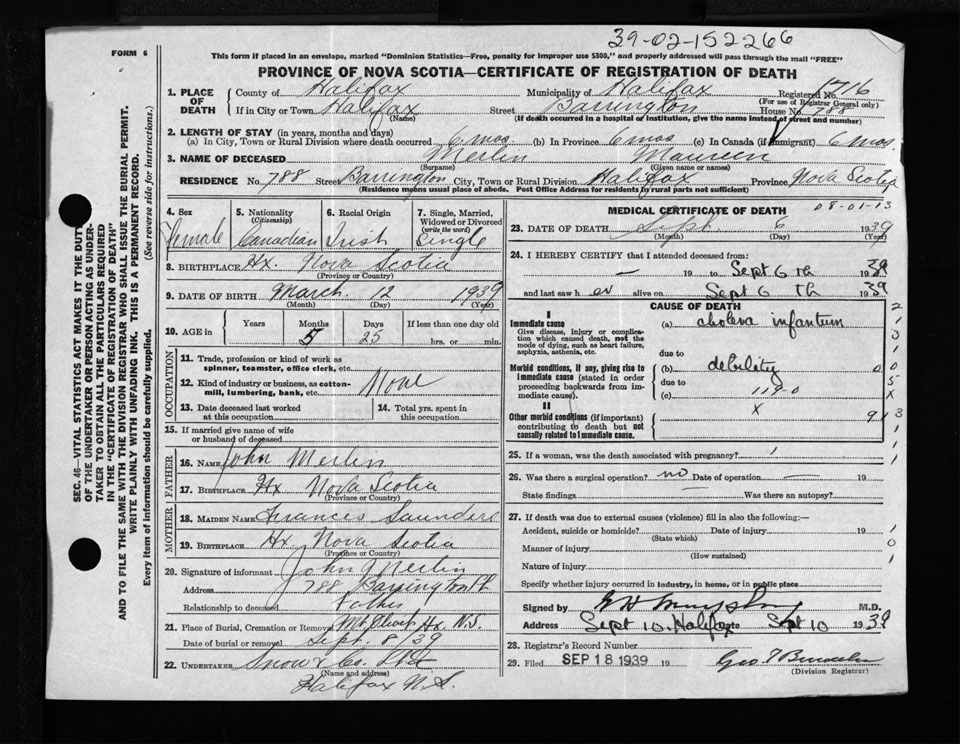 39-02-152266
FORM 6
This form if placed in an envelope, marked "Dominion Statistics—Free, penalty for improper use $300," and properly addressed will pass through the mail "FREE"
PROVINCE OF NOVA SCOTIA—CERTIFICATE OF REGISTRATION OF DEATH
1. PLACE OF DEATH County of Halifax Municipality of Halifax Registered No. 1716
(For use of Registrar General only)
If in City or Town Halifax Street Barrington House No. 788
(Name) (If death occurred in a hospital or institution, give the name instead of street and number)
2. LENGTH OF STAY (in years, months and days)
(a) In City, Town or Rural Division where death occurred 6 mos (b) In Province 6 mos (c) In Canada (if immigrant) 6 mos
3. NAME OF DECEASED Merlin Maureen
(Surname) (Given name or names)
RESIDENCE No. 788 Street Barrington City, Town or Rural Division Halifax Province Nova Scotia
(Residence means usual place of abode. Post Office Address for residents in rural parts not sufficient)
4. Sex 5. Nationality (Citizenship) 6. Racial Origin 7. Single, Married, Widowed or Divorced (write the word)
Female Canadian Irish Single
8. BIRTHPLACE Hx. Nova Scotia
(Province or Country)
9. DATE OF BIRTH March 12 1939
(Month) (Day) (Year)
10. AGE in Years Months Days If less than one day old
5 25 hrs. or min.
OCCUPATION
11. Trade, profession or kind of work as spinner, teamster, office clerk, etc.
12. Kind of industry or business, as cotton-mill, lumbering, bank, etc. None
13. Date deceased last worked at this occupation
14. Total yrs. spent in this occupation
15. If married give name of wife or husband of deceased
FATHER
16. Name John Merlin
17. Birthplace Hx Nova Scotia
(Province or Country)
MOTHER
18. Maiden Name Frances Saunders
19. Birthplace Hx Nova Scotia
(Province or Country)
20. Signature of informant John J Merlin
Address 788 Barrington St
Relationship to deceased Father
21. Place of Burial, Cremation or Removal Mt. Olivet Hx N.S
Date of burial or removal Sept. 8 39
22. UNDERTAKER Snow & Co. Ltd
(Name and address)
Halifax N.S.
MEDICAL CERTIFICATE OF DEATH 08-01-13
23. DATE OF DEATH Sept. 6 1939
(Month) (Day) (Year)
24. I HEREBY CERTIFY that I attended deceased from:
— 19 to Sept 6 th 1939
and last saw her alive on Sept 6 th 1939
CAUSE OF DEATH
I
Immediate cause
Give disease, injury or complication which caused death, not the mode of dying, such as heart failure, asphyxia, asthenia, etc.
(a) cholera infantum
due to
Morbid conditions, if any, giving rise to immediate cause (stated in order proceeding backwards from immediate cause).
(b) debility
due to
(c) 119-0
x
II
Other morbid conditions (if important) contributing to death but not causally related to immediate cause.
25. If a woman, was the death associated with pregnancy?
26. Was there a surgical operation? no Date of operation — 19
State findings Was there an autopsy?
27. If death was due to external causes (violence) fill in also the following:—
Accident, suicide or homicide? Date of injury 19
(State which)
Manner of injury
(How sustained)
Nature of injury
Specify whether injury occurred in industry, in home, or in public place
Signed by M.D.
Address Sept 10. Halifax Date Sept 10 1939
28. Registrar's Record Number
29. Filed SEP 18 1939
(Division Registrar)
SEC. 46—VITAL STATISTICS ACT MAKES IT THE DUTY OF THE UNDERTAKER OR PERSON ACTING AS UNDERTAKER TO OBTAIN ALL THE PARTICULARS REQUIRED IN THE "CERTIFICATE OF REGISTRATION OF DEATH"
AND TO FILE THE SAME WITH THE DIVISION REGISTRAR WHO SHALL ISSUE THE BURIAL PERMIT.
WRITE PLAINLY WITH UNFADING INK. THIS IS A PERMANENT RECORD.
Every item of information should be carefully supplied. (See reverse side for instructions.)